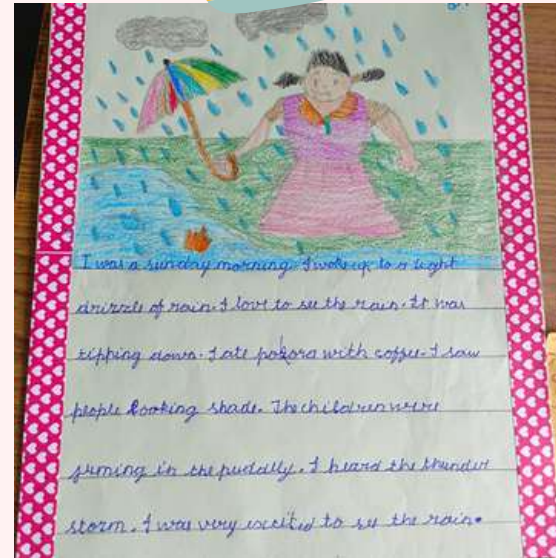 I was a sunday morning. I woke up to a light
drizzle of rain. I love to see the rain. It was
tipping down. I ate pakora with coffee. I saw
people looking shade. The children were
juming in the puddlly. I heard the thunder
storm. I was very excited to see the rain.